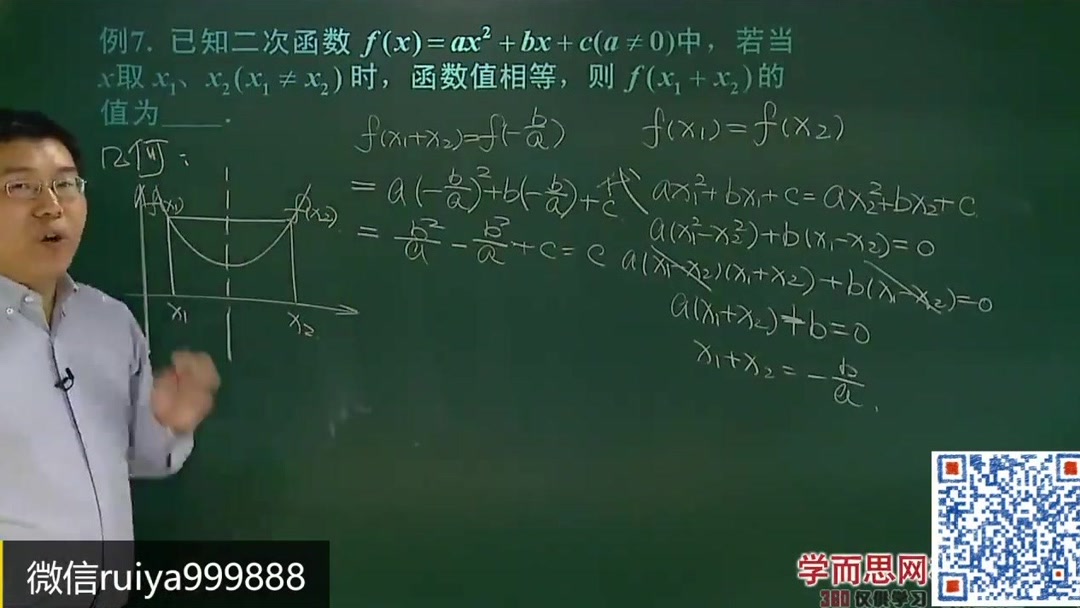 例7. 已知二次函数 f(x)=ax²+bx+c(a≠0)中，若当
x取 x₁、x₂(x₁≠x₂)时，函数值相等，则 f(x₁+x₂)的
值为____.
几何：
f(x₁)
f(x₂)
x₁
x₂
f(x₁+x₂)=f(-b/a)
=a(-b/a)²+b(-b/a)+c
=b²/a-b²/a+c=c
f(x₁)=f(x₂)
代 ax₁²+bx₁+c=ax₂²+bx₂+c
a(x₁²-x₂²)+b(x₁-x₂)=0
a(x₁-x₂)(x₁+x₂)+b(x₁-x₂)=0
a(x₁+x₂)+b=0
x₁+x₂=-b/a.
微信ruiya999888
学而思网